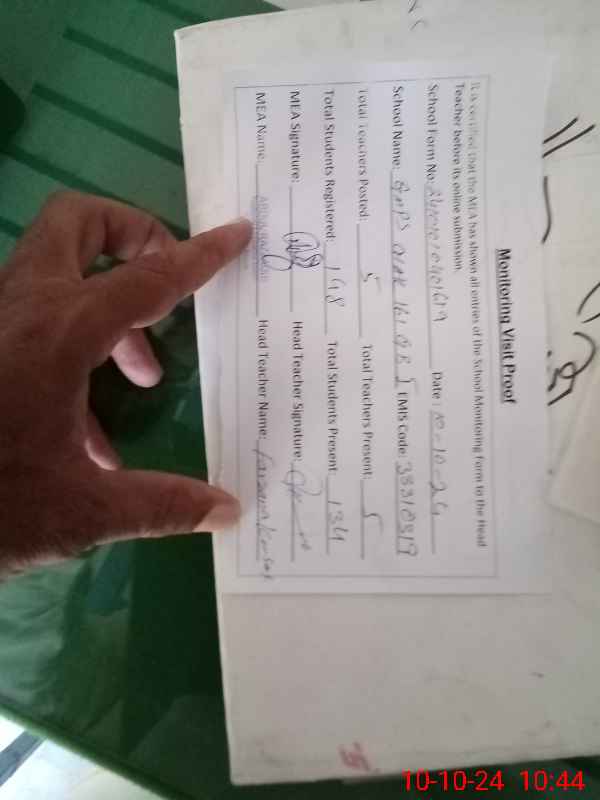 Monitoring Visit Proof
It is certified that the MEA has shown all entries of the School Monitoring Form to the Head
Teacher before its online submission.
School Form No: Date: 10-10-24
School Name: GMPS 161 GB I EMIS Code: 33310319
Total Teachers Posted: 5 Total Teachers Present: 5
Total Students Registered: 148 Total Students Present 134
MEA Signature: Head Teacher Signature:
MEA Name: Head Teacher Name: Farzana Kausar
10-10-24 10:44